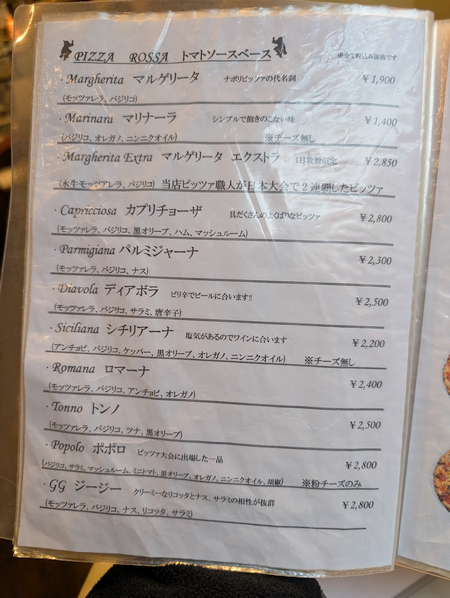 PIZZA ROSSA トマトソースベース ※全て税込み価格です
・Margherita マルゲリータ ナポリピッツァの代名詞 ¥1,900
(モッツァレラ、バジリコ)
・Marinara マリナーラ シンプルで飽きのこない味 ¥1,400
(バジリコ、オレガノ、ニンニクオイル) ※チーズ無し
・Margherita Extra マルゲリータ エクストラ 1日枚数限定 ¥2,850
(水牛モッツァレラ、バジリコ) 当店ピッツァ職人が日本大会で2連覇したピッツァ
・Capricciosa カプリチョーザ 具だくさんのよくばりなピッツァ ¥2,800
(モッツァレラ、バジリコ、黒オリーブ、ハム、マッシュルーム)
・Parmigiana パルミジャーナ ¥2,300
(モッツァレラ、バジリコ、ナス)
・Diavola ディアボラ ピリ辛でビールに合います!! ¥2,500
(モッツァレラ、バジリコ、サラミ、唐辛子)
・Siciliana シチリアーナ 塩気があるのでワインに合います ¥2,200
(アンチョビ、バジリコ、ケッパー、黒オリーブ、オレガノ、ニンニクオイル) ※チーズ無し
・Romana ロマーナ ¥2,400
(モッツァレラ、バジリコ、アンチョビ、オレガノ)
・Tonno トンノ ¥2,500
(モッツァレラ、バジリコ、ツナ、黒オリーブ)
・Popolo ポポロ ピッツァ大会に出場した一品 ¥2,800
(バジリコ、サラミ、マッシュルーム、ミニトマト、黒オリーブ、オレガノ、ニンニクオイル、胡椒) ※粉チーズのみ
・GG ジージー クリーミーなリコッタとナス、サラミの相性が抜群 ¥2,800
(モッツァレラ、バジリコ、ナス、リコッタ、サラミ)